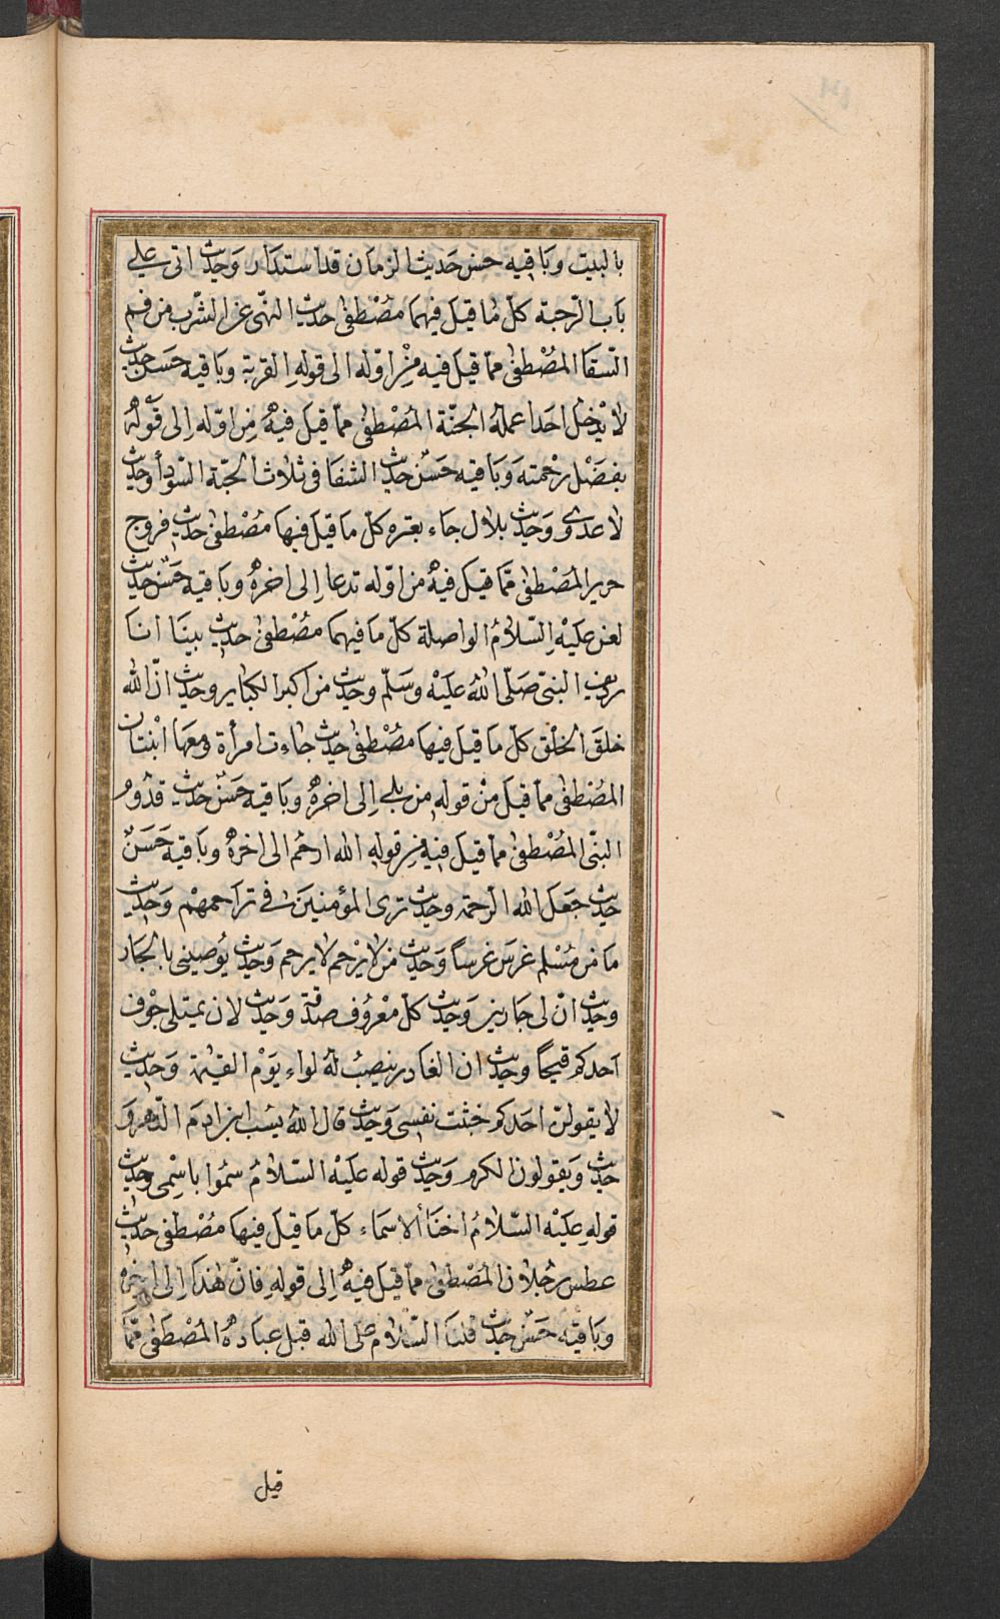 بالبيت وباقيه حسن حديث الزمان قد استدار وحديث اتى علي
باب الرحبة كل ما قيل فيهما مصطفى حديث النهى عن الشرب من فم
السقا المصطفى مما قيل فيه من اوله الى قوله القربة وباقيه حسن حديث
لا يدخل احدا عمله الجنة المصطفى مما قيل فيه من اوله إلى قوله
بفضل رحمته وباقيه حسن حديث الشفا فى ثلاث الحبة السودأ وحديث
لا عدوى وحديث بلال جاء بعنزه كل ما قيل فيها مصطفى حديث فروج
حرير المصطفى مما قيل فيه من اوله تدعا إلى اخره وباقيه حسن حديث
لعن عليه السلام الواصلة كل ما فيهما مصطفى حديث بينا انا
رديف النبى صلى الله عليه وسلم وحديث من اكبر الكباير وحديث ان الله
خلق الخلق كل ما قيل فيها مصطفى حديث جاءت امرأة ومعها ابنتان
المصطفى مما قيل من قوله من يلى إلى اخره وباقيه حسن حديث قدوم
النبى المصطفى مما قيل فيه من قوله الله ارحم الى اخره وباقيه حسن
حديث جعل الله الرحمة وحديث ترى المؤمنين فى تراحمهم وحديث
ما من مسلم غرس غرسا وحديث من لا يرحم لا يرحم وحديث يوصينى بالجار
وحديث ان لى جارين وحديث كل معروف صدقة وحديث لان يمتلى جوف
احدكم قيحا وحديث ان الغادر ينصب له لواء يوم القيمة وحديث
لا يقولن احدكم خبثت نفسى وحديث قال الله يسب ابن ادم الدهر و
حديث ويقولون الكرم وحديث قوله عليه السلام سموا باسمى وحديث
قوله عليه السلام اخنأ الاسماء كل ما قيل فيها مصطفى حديث
عطس رجلان المصطفى مما قيل فيه إلى قوله فان هذا إلى اخره
وباقيه حسن حديث قلنا السلام على الله قبل عباده المصطفى مما
قيل